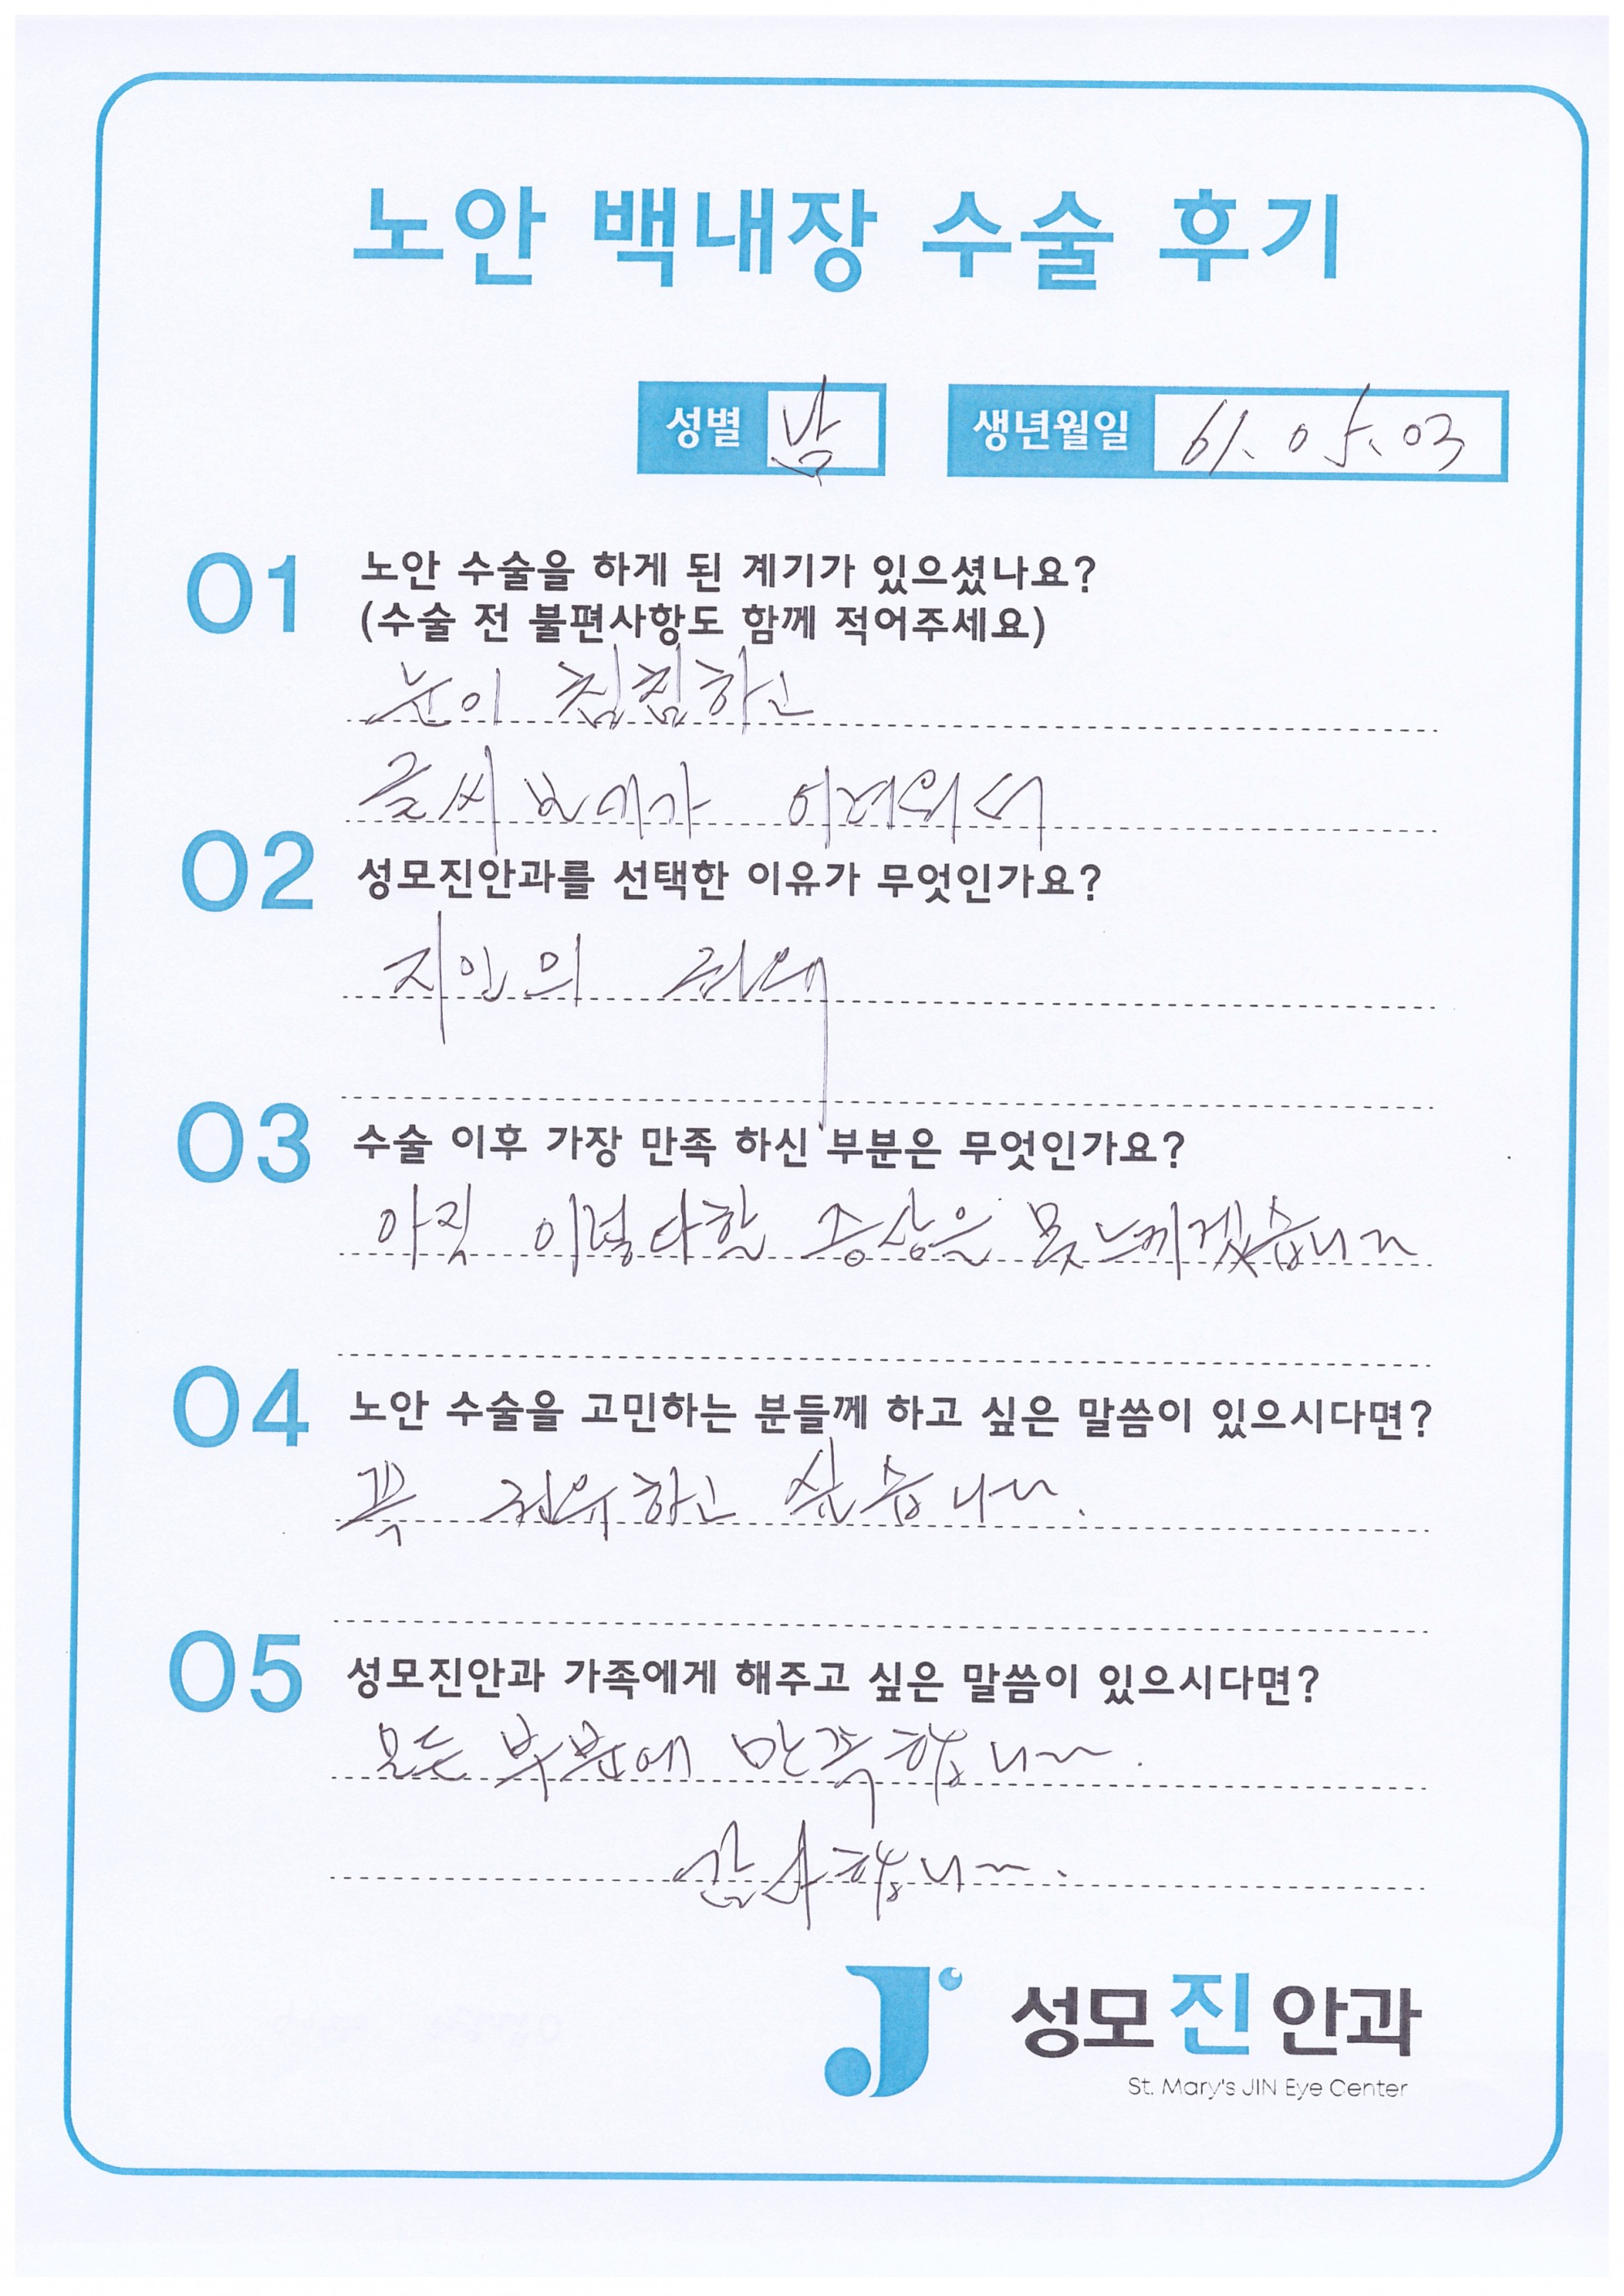 노안 백내장 수술 후기
성별 남 생년월일 61. 05. 03
01 노안 수술을 하게 된 계기가 있으셨나요?
(수술 전 불편사항도 함께 적어주세요)
눈이 침침하고
글씨 보기가 어려워서
02 성모진안과를 선택한 이유가 무엇인가요?
지인의 권유
03 수술 이후 가장 만족 하신 부분은 무엇인가요?
아직 이렇다할 증상은 못느끼겠습니다
04 노안 수술을 고민하는 분들께 하고 싶은 말씀이 있으시다면?
꼭 권유하고 싶습니다.
05 성모진안과 가족에게 해주고 싶은 말씀이 있으시다면?
모든 부분에 만족합니다.
감사합니다.
성모진안과
St. Mary's JIN Eye Center